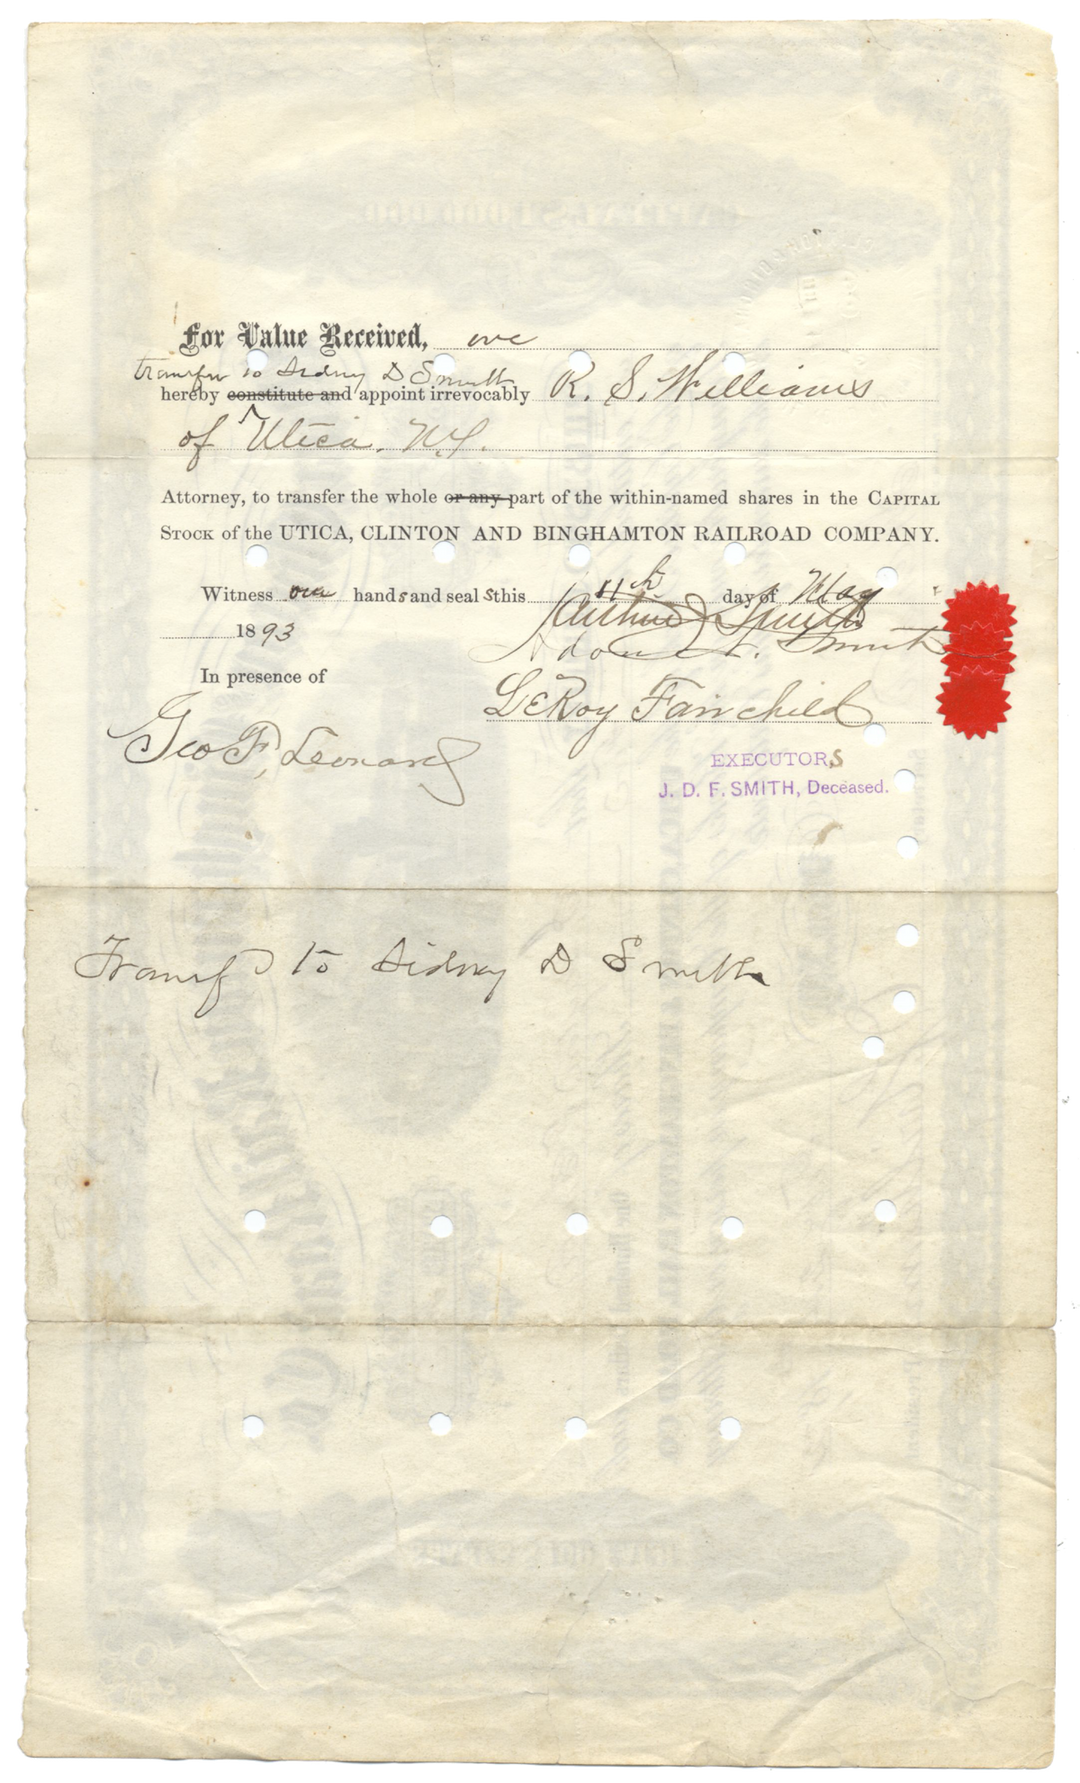 For Value Received, we
transfer to Sidney D Smith
hereby constitute and appoint irrevocably R. S. Williams
of Utica. N.Y.
Attorney, to transfer the whole or any part of the within-named shares in the CAPITAL
STOCK of the UTICA, CLINTON AND BINGHAMTON RAILROAD COMPANY.
Witness our hands and seals this 11th day of May
1893
Arthur J Smith
A. Smith
In presence of
LeRoy Fairchild
Geo F. Leonard
EXECUTORS
J. D. F. SMITH, Deceased.
Transf to Sidney D Smith